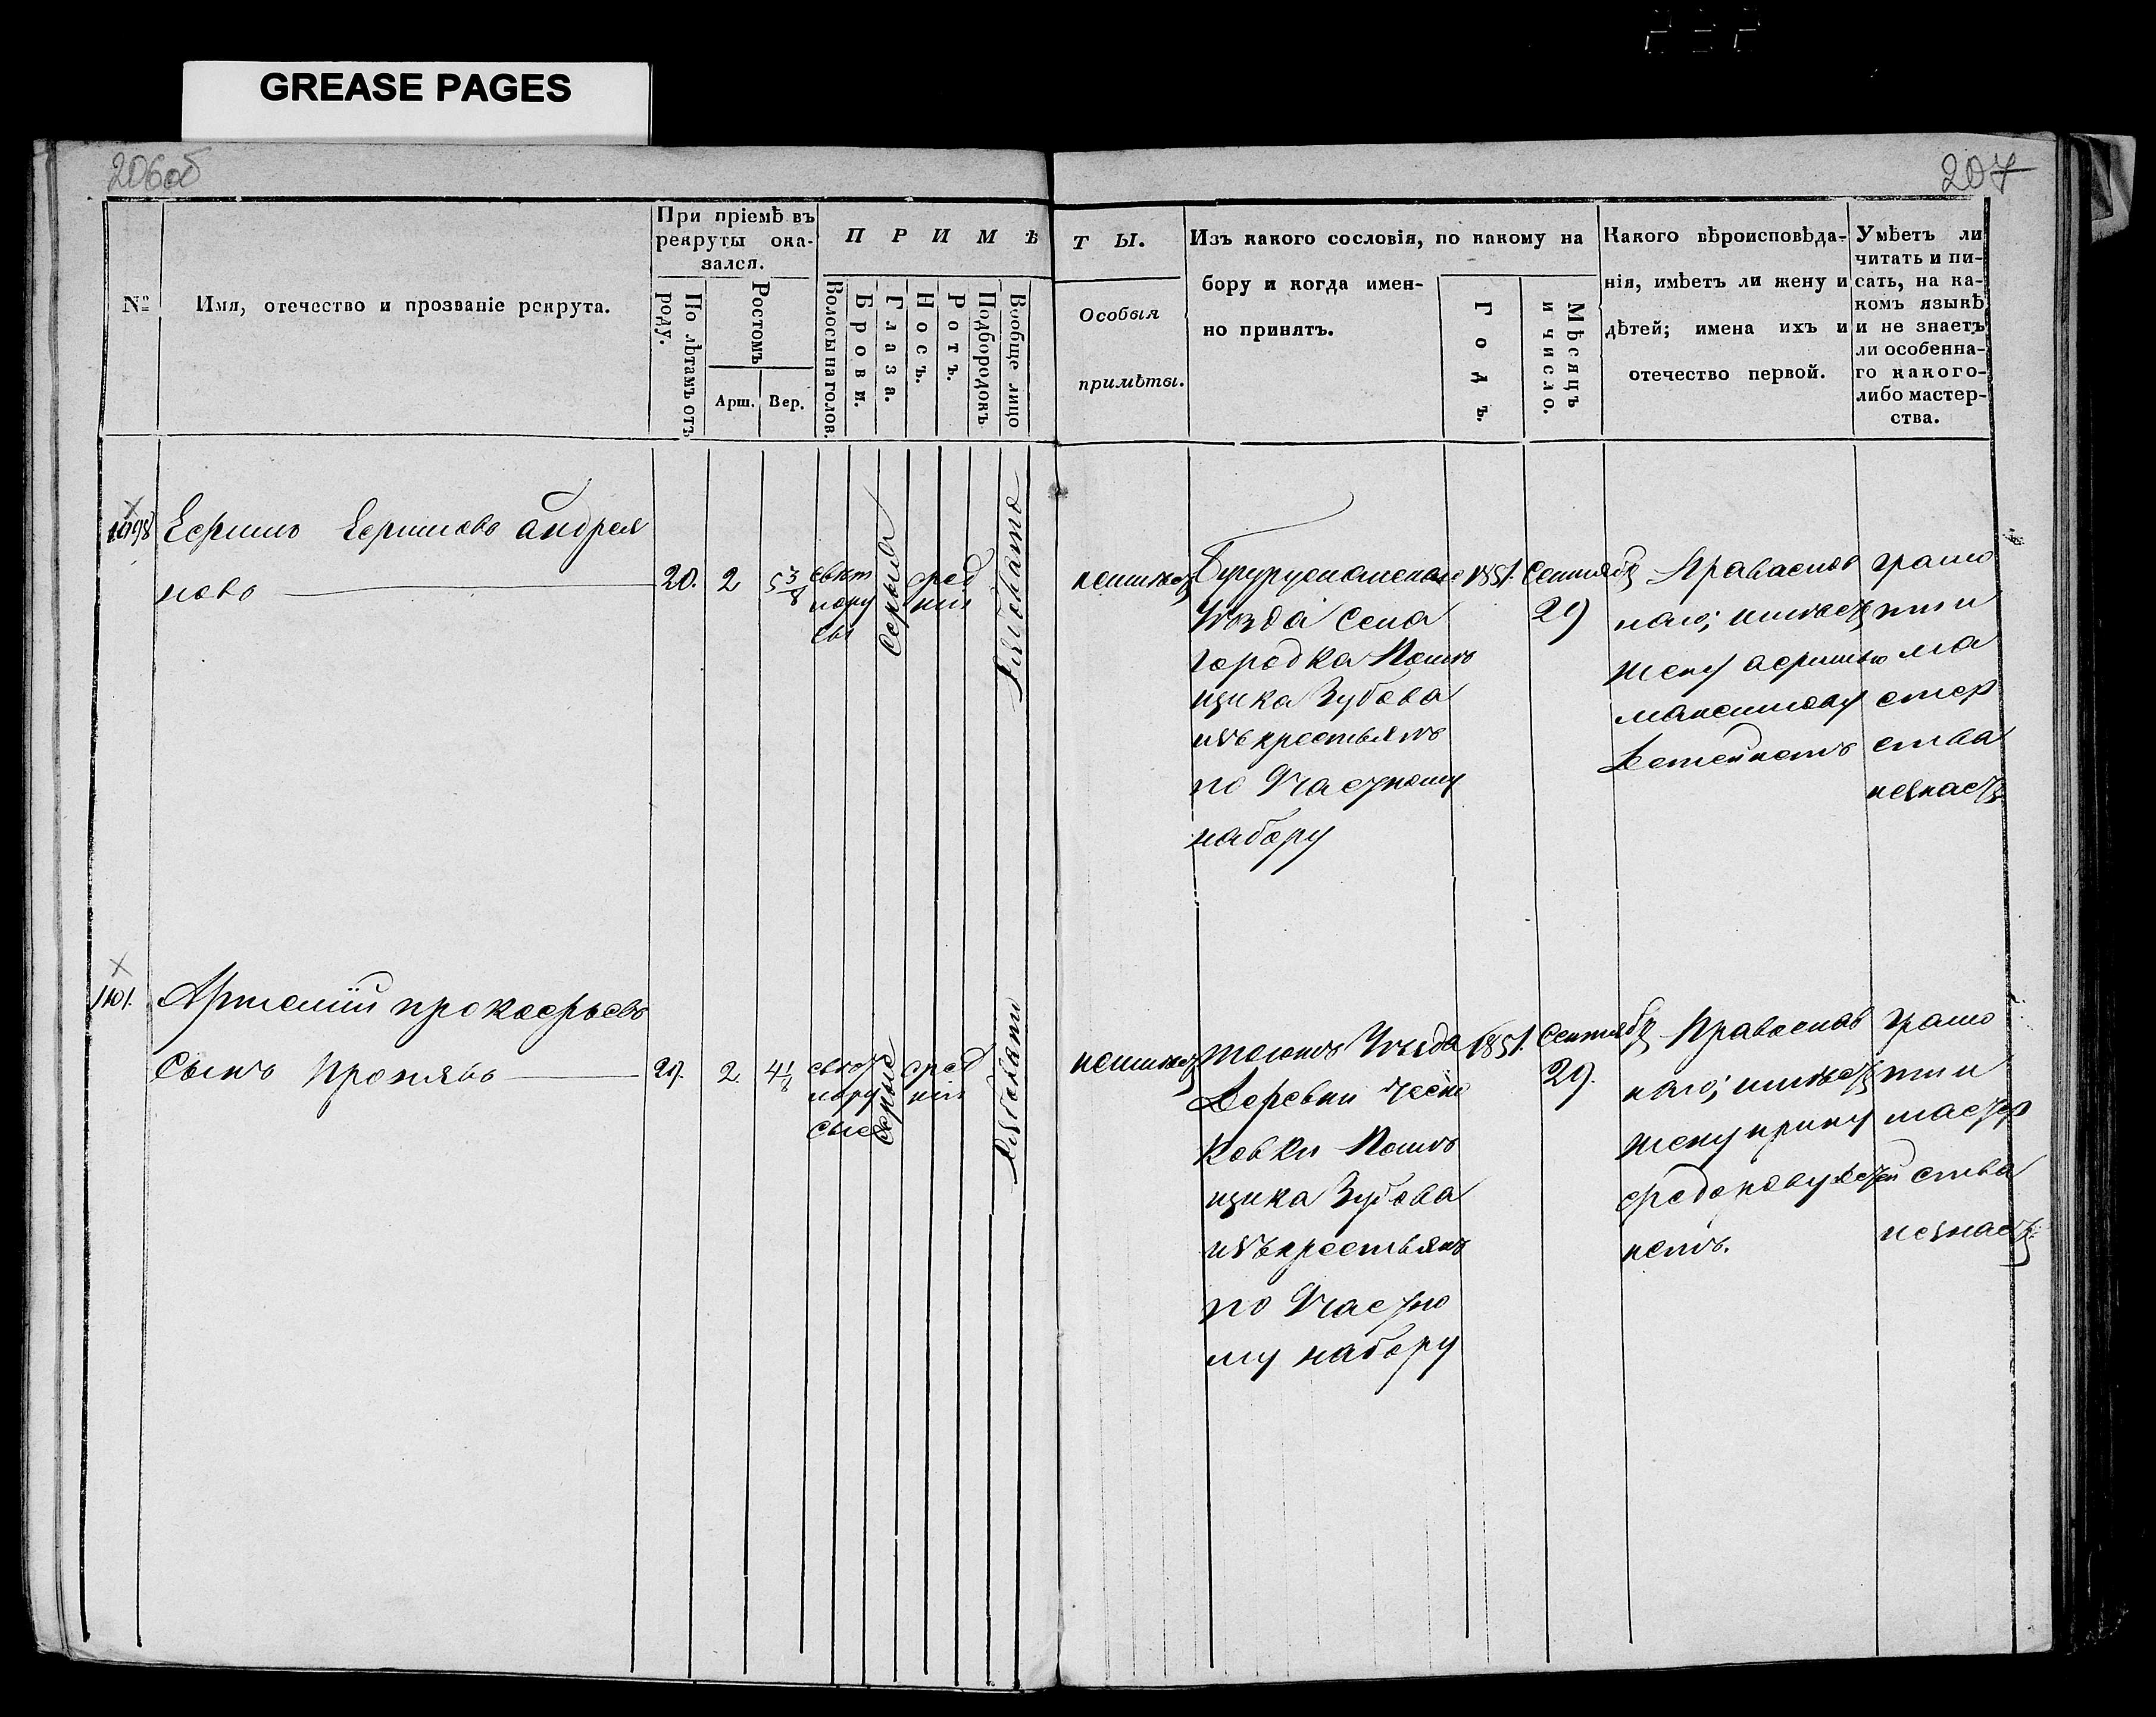 GREASE PAGES
206об
207
№
Имя, отечество и прозваніе рекрута.
При пріемѣ въ
рекруты ока-
зался.
По лѣтамъ отъ
роду.
Ростомъ
Арш.
Вер.
ПРИМѢ
Волосы на голов.
Брови.
Глаза.
Носъ.
Ротъ.
Подбородокъ
Вообще лицо
ТЫ.
Особыя
примѣты.
Изъ какого сословія, по какому на
бору и когда имен-
но принятъ.
Годъ.
Мѣсяцъ
и число.
Какого вѣроисповѣда-
нія, имѣетъ ли жену и
дѣтей; имена ихъ и
отечество первой.
Умѣетъ ли
читать и пи-
сать, на ка-
комъ языкѣ
и не знаетъ
ли особенна-
го какого-
либо мастер-
ства.
Ефимъ Ефимовъ андрея
новъ
20.
2
5 3/8
свет
лору
сы
Серыя
сред
нія
Рябовато
неимеет
Уезда Села
городка Поме
щика Зубова
изъ крестьянъ
по Частному
набору
1851.
Сентября
29
Православ
наго; имеетъ
жену
максимову
детей нетъ
грамо
ти и
ма
стер
ства
незнаетъ
1101.
Артемій прокофьевъ
Сынъ
29.
2.
4 1/8
светл
лору
сые
серые
сред
нія
Рябовато
неимеет
Уезда
Деревни
ковки Поме
щика Зубова
изъ крестьянъ
по Частно
му набору
1851.
Сентября
29.
Православ
наго; имеетъ
жену ирину
федорову детей
нетъ.
грамо
ти и
мастер
ства
незнаетъ